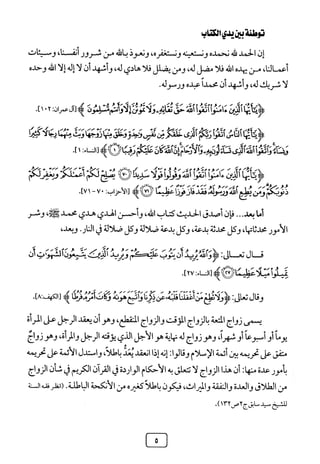 توطئة بين يدي الكتاب
إن الحمد لله نحمده ونستعينه ونستغفره، ونعوذ بالله من شرور أنفسنا، وسيئات
أعمالنا، من يهده الله فلا مضل له، ومن يضلل فلا هادي له، وأشهد أن لا إله إلا الله وحده
لا شريك له، وأشهد أن محمداً عبده ورسوله.
﴿يَٰٓأَيُّهَا ٱلَّذِينَ ءَامَنُوا۟ ٱتَّقُوا۟ ٱللَّهَ حَقَّ تُقَاتِهِۦ وَلَا تَمُوتُنَّ إِلَّا وَأَنتُم مُّسْلِمُونَ﴾ [آل عمران: ١٠٢].
﴿يَٰٓأَيُّهَا ٱلنَّاسُ ٱتَّقُوا۟ رَبَّكُمُ ٱلَّذِى خَلَقَكُم مِّن نَّفْسٍ وَٰحِدَةٍ وَخَلَقَ مِنْهَا زَوْجَهَا وَبَثَّ مِنْهُمَا رِجَالًا كَثِيرًا
وَنِسَآءً وَٱتَّقُوا۟ ٱللَّهَ ٱلَّذِى تَسَآءَلُونَ بِهِۦ وَٱلْأَرْحَامَ إِنَّ ٱللَّهَ كَانَ عَلَيْكُمْ رَقِيبًا ١﴾ [النساء: ١].
﴿يَٰٓأَيُّهَا ٱلَّذِينَ ءَامَنُوا۟ ٱتَّقُوا۟ ٱللَّهَ وَقُولُوا۟ قَوْلًا سَدِيدًا ٧٠ يُصْلِحْ لَكُمْ أَعْمَٰلَكُمْ وَيَغْفِرْ لَكُمْ
ذُنُوبَكُمْ وَمَن يُطِعِ ٱللَّهَ وَرَسُولَهُۥ فَقَدْ فَازَ فَوْزًا عَظِيمًا ٧١﴾ [الأحزاب: ٧٠ - ٧١].
أما بعد... فإن أصدق الحديث كتاب الله، وأحسن الهدي هدي محمد ﷺ، وشر
الأمور محدثاتها، وكل محدثة بدعة، وكل بدعة ضلالة وكل ضلالة في النار. وبعد،
قال تعالى: ﴿وَٱللَّهُ يُرِيدُ أَن يَتُوبَ عَلَيْكُمْ وَيُرِيدُ ٱلَّذِينَ يَتَّبِعُونَ ٱلشَّهَوَٰتِ أَن
تَمِيلُوا۟ مَيْلًا عَظِيمًا ٢٧﴾ [النساء: ٢٧].
وقال تعالى: ﴿وَلَا تُطِعْ مَنْ أَغْفَلْنَا قَلْبَهُۥ عَن ذِكْرِنَا وَٱتَّبَعَ هَوَىٰهُ وَكَانَ أَمْرُهُۥ فُرُطًا﴾ [الكهف: ٨].
يسمى زواج المتعة بالزواج المؤقت والزواج المنقطع، وهو أن يعقد الرجل على المرأة
يوماً أو أسبوعاً أو شهراً، وهو زواج له نهاية هو الأجل الذي يؤقته الرجل والمرأة، وهو زواجٌ
متفق على تحريمه بين أئمة الإسلام وقالوا: إنه إذا انعقد يُعَدُّ باطلاً، واستدل الأئمة على تحريمه
بأمور عدة منها: أن هذا الزواج لا تتعلق به الأحكام الواردة في القرآن الكريم في شأن الزواج
من الطلاق والعدة والنفقة والميراث، فيكون باطلاً كغيره من الأنكحة الباطلة. (انظر فقه السنة
للشيخ سيد سابق ج٢ ص١٣٢).
٥